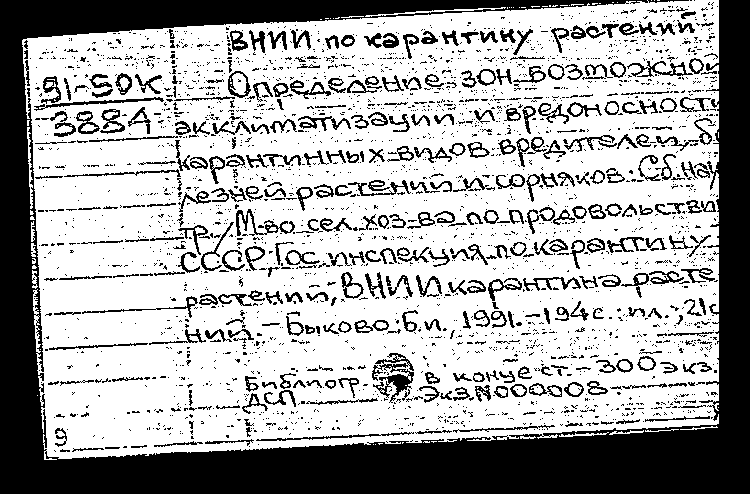 ВНИИ по карантину растений
91-50К
Определение зон возможной
3884
акклиматизации и вредоносности
карантинных видов вредителей, бо
лезней растений и сорняков: Сб. науч
тр. / М-во сел. хоз-ва по продовольствию
СССР, Гос. инспекция по карантину
растений, ВНИИ карантина расте
ний. - Быково: Б.и., 1991. - 194 с.: ил.; 21с
Библиогр. в конце ст. - 300 экз.
ДСП. Экз. N000008.
9